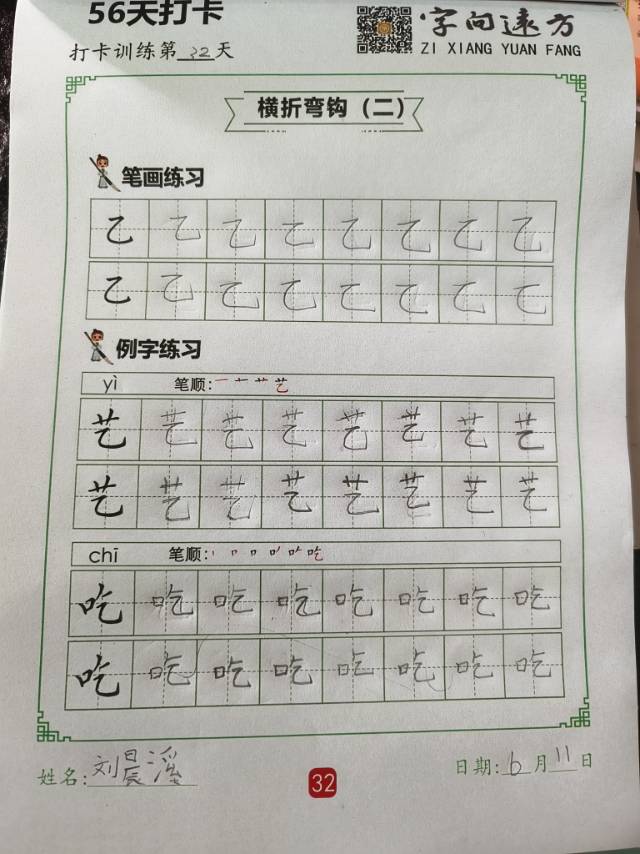 56天打卡
字向远方
打卡训练第32天
ZI XIANG YUAN FANG
横折弯钩（二）
笔画练习
乙 乙 乙 乙 乙 乙 乙 乙
乙 乙 乙 乙 乙 乙 乙 乙
例字练习
yì 笔顺: 一 十 艹 艺
艺 艺 艺 艺 艺 艺 艺 艺
艺 艺 艺 艺 艺 艺 艺 艺
chī 笔顺:
吃 吃 吃 吃 吃 吃 吃 吃
吃 吃 吃 吃 吃 吃 吃 吃
姓名: 刘晨溪
32
日期: 6月11日